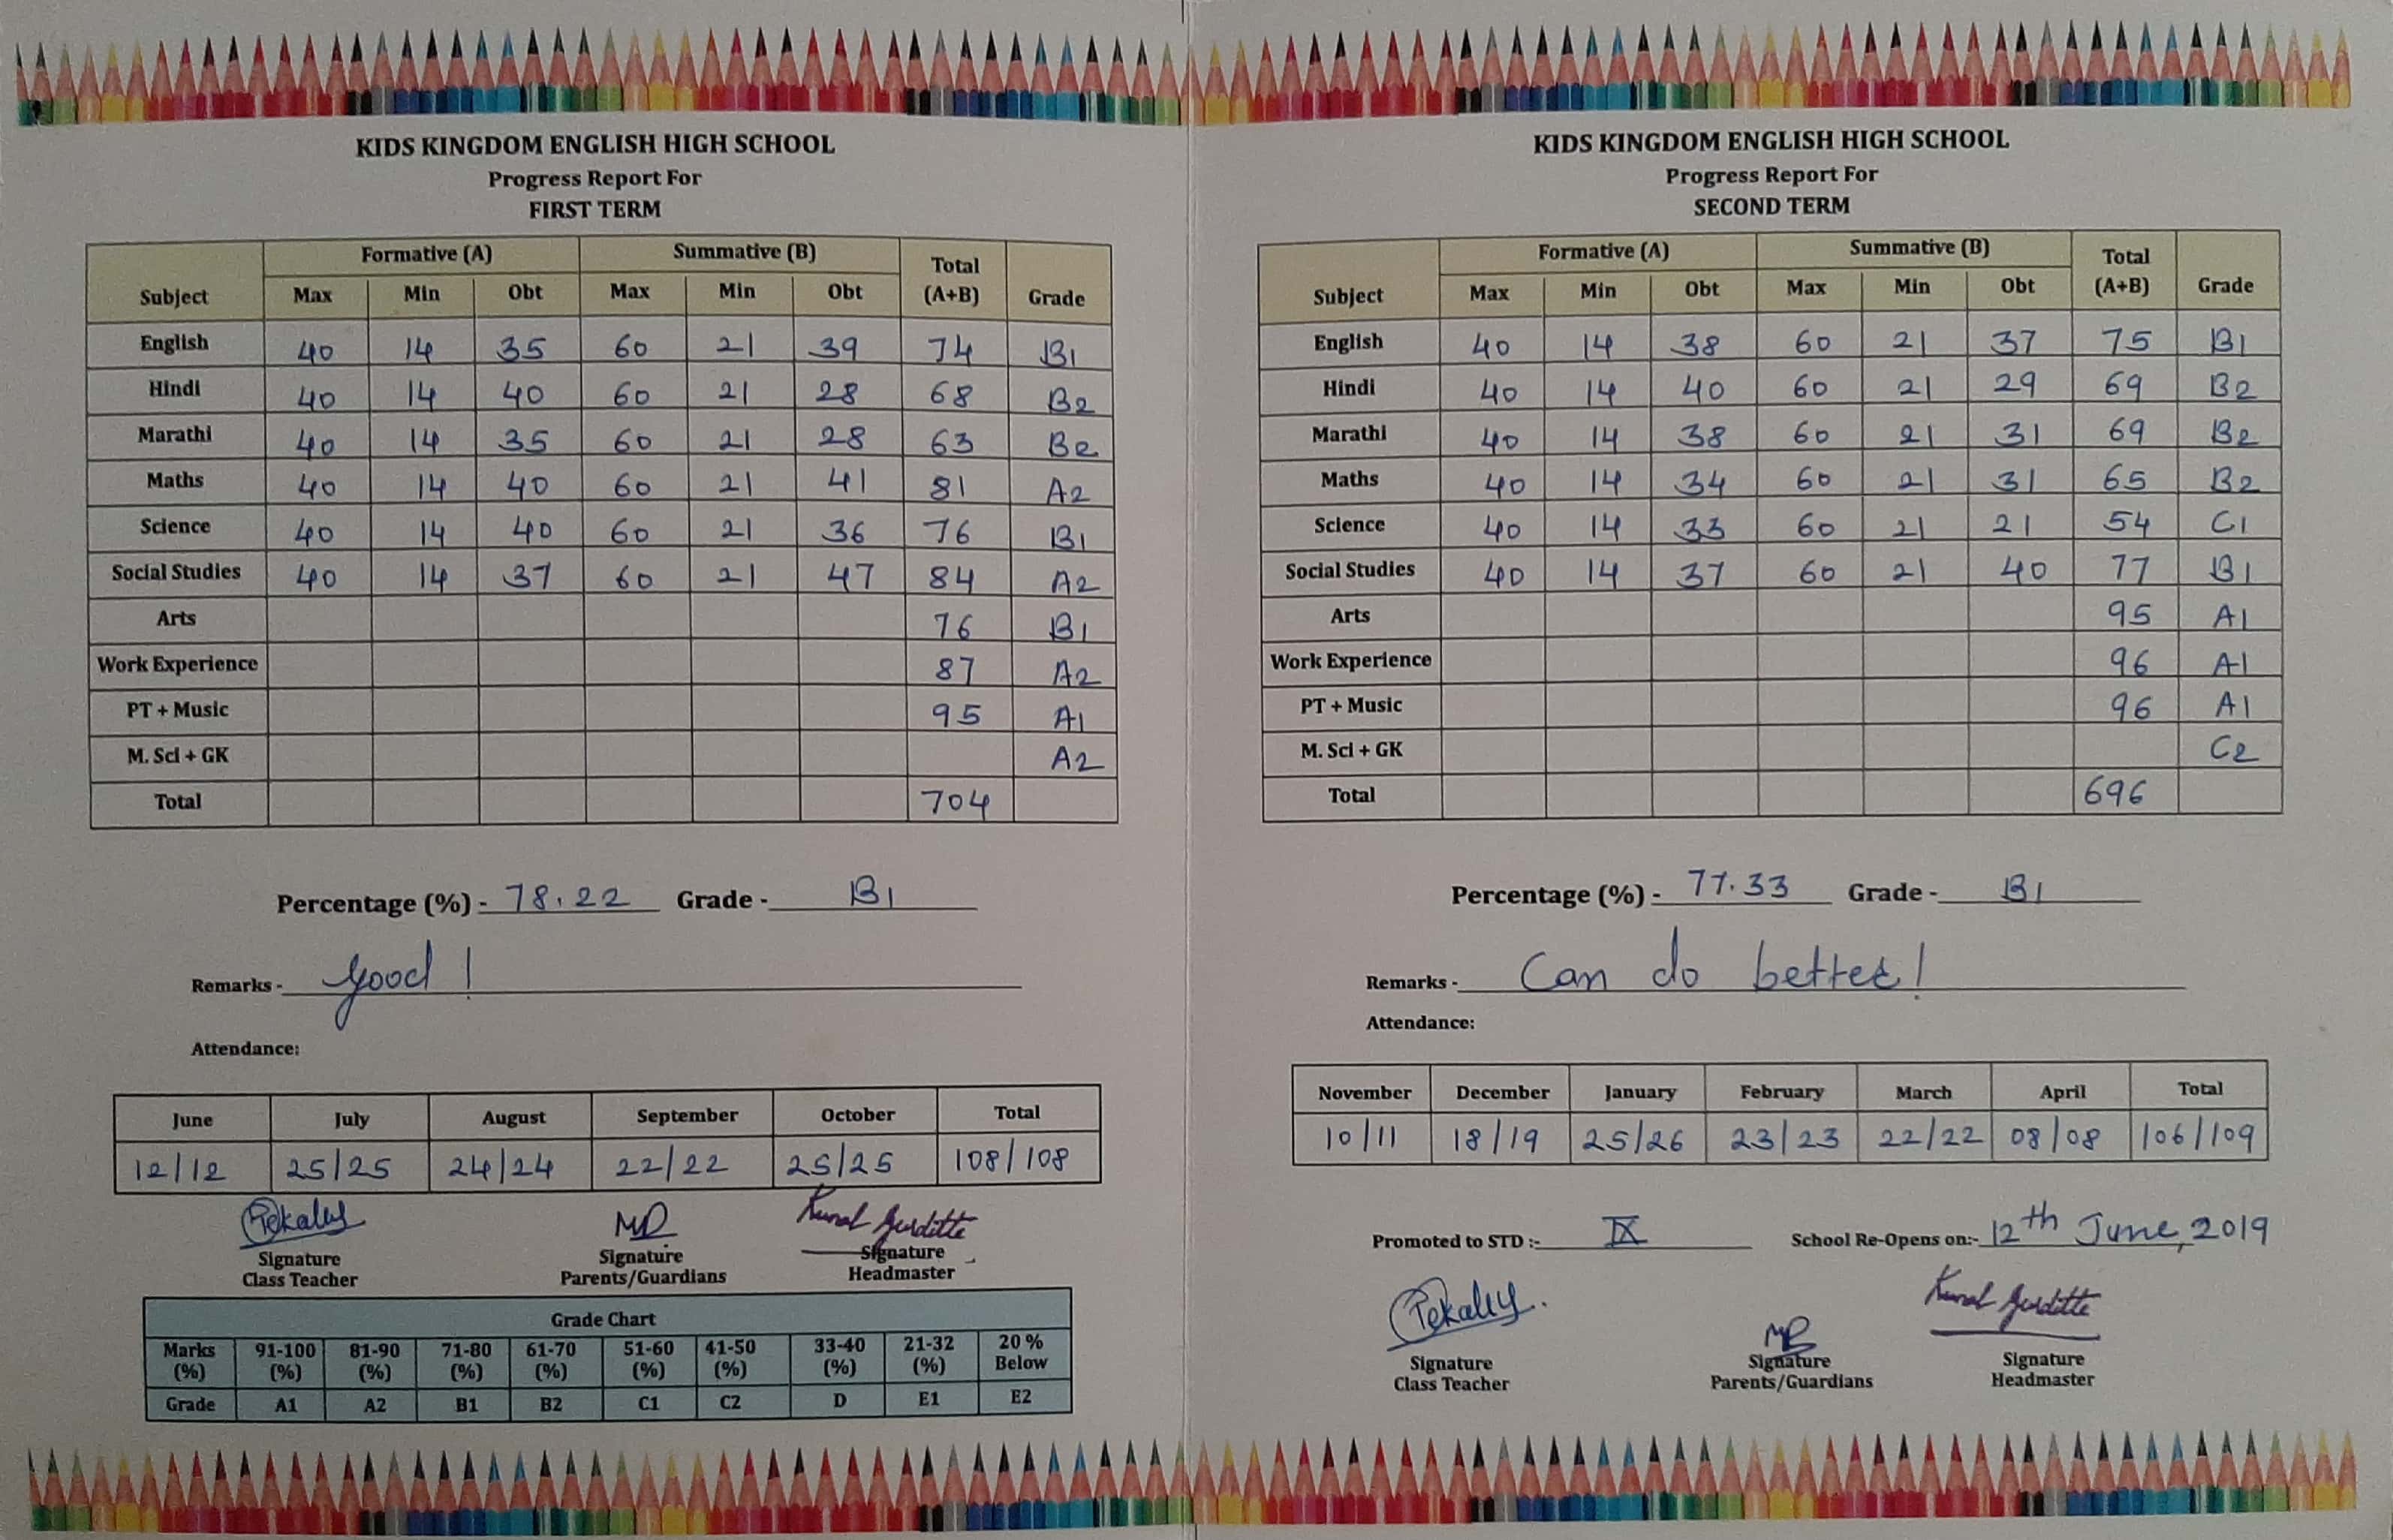 KIDS KINGDOM ENGLISH HIGH SCHOOL
Progress Report For
FIRST TERM
Subject Formative (A) Summative (B) Total (A+B) Grade
Max Min Obt Max Min Obt
English 40 14 35 60 21 39 74 B1
Hindi 40 14 40 60 21 28 68 B2
Marathi 40 14 35 60 21 28 63 B2
Maths 40 14 40 60 21 41 81 A2
Science 40 14 40 60 21 36 76 B1
Social Studies 40 14 37 60 21 47 84 A2
Arts 76 B1
Work Experience 87 A2
PT + Music 95 A1
M. Sci + GK A2
Total 704
Percentage (%) - 78.22 Grade - B1
Remarks - Good !
Attendance:
June July August September October Total
12/12 25/25 24/24 22/22 25/25 108/108
Kunal Gurditte
Signature Signature Signature
Class Teacher Parents/Guardians Headmaster
Grade Chart
Marks (%) 91-100 (%) 81-90 (%) 71-80 (%) 61-70 (%) 51-60 (%) 41-50 (%) 33-40 (%) 21-32 (%) 20 % Below
Grade A1 A2 B1 B2 C1 C2 D E1 E2
KIDS KINGDOM ENGLISH HIGH SCHOOL
Progress Report For
SECOND TERM
Subject Formative (A) Summative (B) Total (A+B) Grade
Max Min Obt Max Min Obt
English 40 14 38 60 21 37 75 B1
Hindi 40 14 40 60 21 29 69 B2
Marathi 40 14 38 60 21 31 69 B2
Maths 40 14 34 60 21 31 65 B2
Science 40 14 33 60 21 21 54 C1
Social Studies 40 14 37 60 21 40 77 B1
Arts 95 A1
Work Experience 96 A1
PT + Music 96 A1
M. Sci + GK C2
Total 696
Percentage (%) - 77.33 Grade - B1
Remarks - Can do better!
Attendance:
November December January February March April Total
10/11 18/19 25/26 23/23 22/22 08/08 106/109
Promoted to STD :- IX School Re-Opens on:- 12th June, 2019
Kunal Gurditte
Signature Signature Signature
Class Teacher Parents/Guardians Headmaster